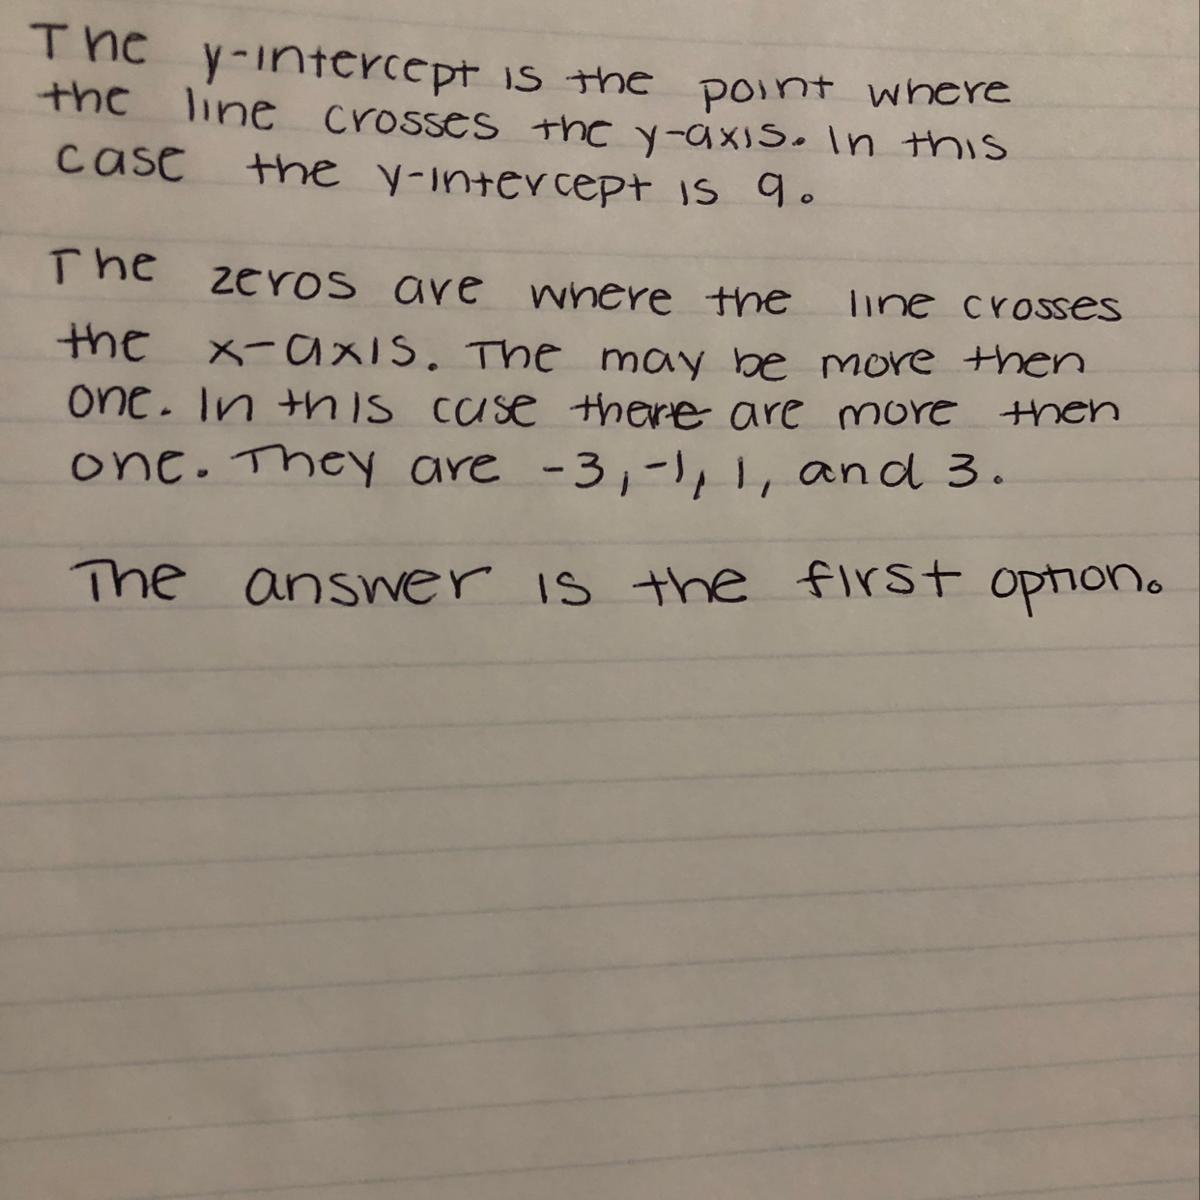 The y-intercept is the point where
the line crosses the y-axis. In this
case the y-intercept is 9.
The zeros are where the line crosses
the x-axis. The may be more then
one. In this case there are more then
one. They are -3, -1, 1, and 3.
The answer is the first option.